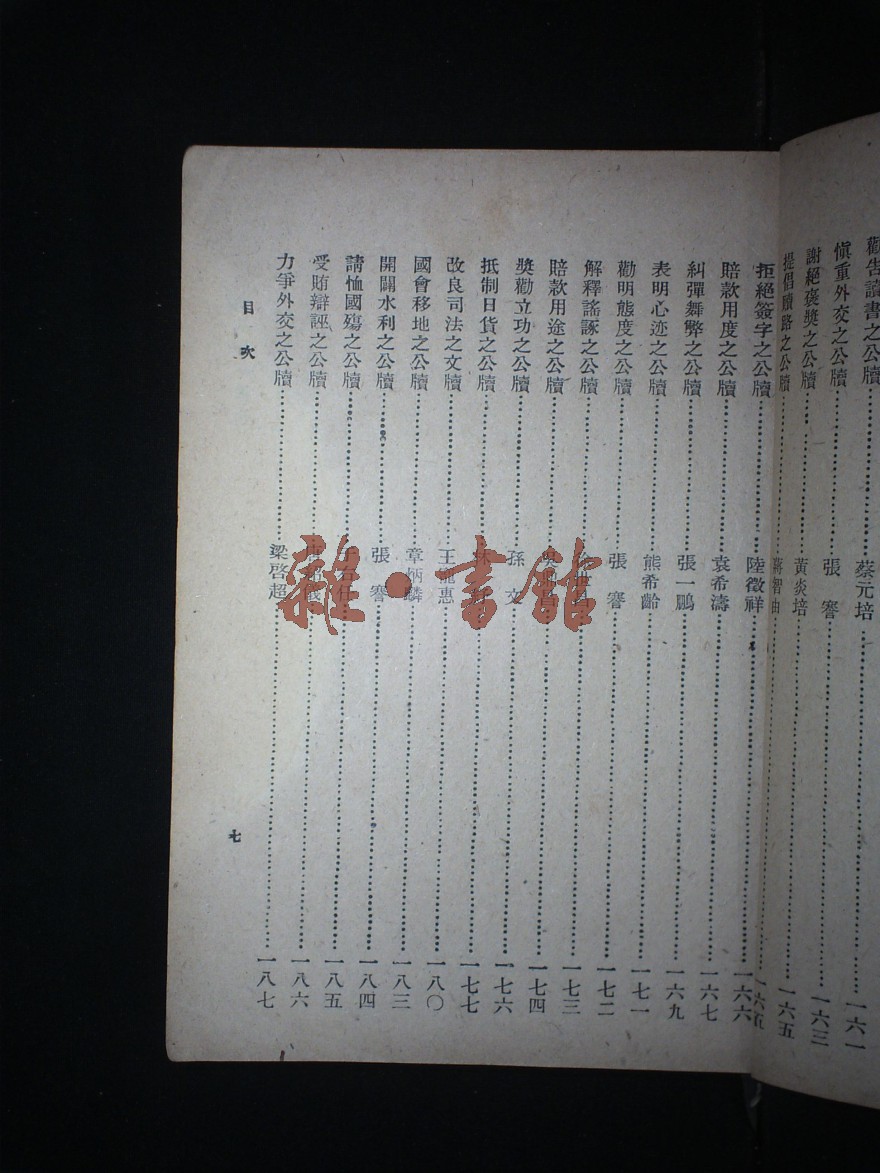 勸告讀書之公牘……蔡元培……一六一
愼重外交之公牘……張謇……一六三
謝絕褒獎之公牘……黃炎培……一六五
提倡贖路之公牘……蔣智由……一六五
拒絕簽字之公牘……陸徵祥……一六六
賠款用度之公牘……袁希濤……一六七
糾彈舞弊之公牘……張一鵬……一六九
表明心迹之公牘……熊希齡……一七一
勸明態度之公牘……張謇……一七二
解釋謠諑之公牘……一七三
賠款用途之公牘……一七四
獎勸立功之公牘……孫文……一七六
抵制日貨之公牘……一七七
改良司法之文牘……王寵惠……一八〇
國會移地之公牘……章炳麟……一八三
開闢水利之公牘……張謇……一八四
請恤國殤之公牘……于右任……一八五
受賄辯誣之公牘……一八六
力爭外交之公牘……梁啓超……一八七
目次
七
雜·書館